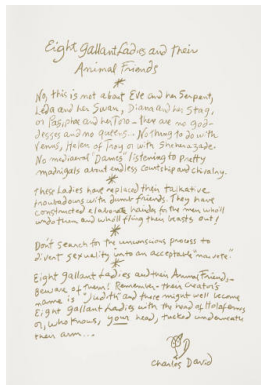 Eight Gallant Ladies and their
Animal Friends
*
No, this is not about Eve and her Serpent,
Leda and her Swan, Diana and her Stag,
or Pasiphae and her Toro - there are no god-
desses and no queens.. Nothing to do with
Venus, Helen of Troy or with Sheherazade.
No mediaeval "Dames" listening to pretty
madrigals about endless courtship and chivalry.
*
These Ladies have replaced their talkative
troubadours with dumb friends. They have
constructed elaborate hands for the men who'll
undo them and who'll fling their beasts out!
*
Don't search for the unconscious process to
divert sexuality into an acceptable
*
Eight Gallant Ladies and their Animal Friends-
Beware of them! Remember their creator's
name is "Judith" and these might well become
Eight Gallant Ladies with the head of Holofernes
or, who knows, your head, tucked underneath
their arm...
Charles David